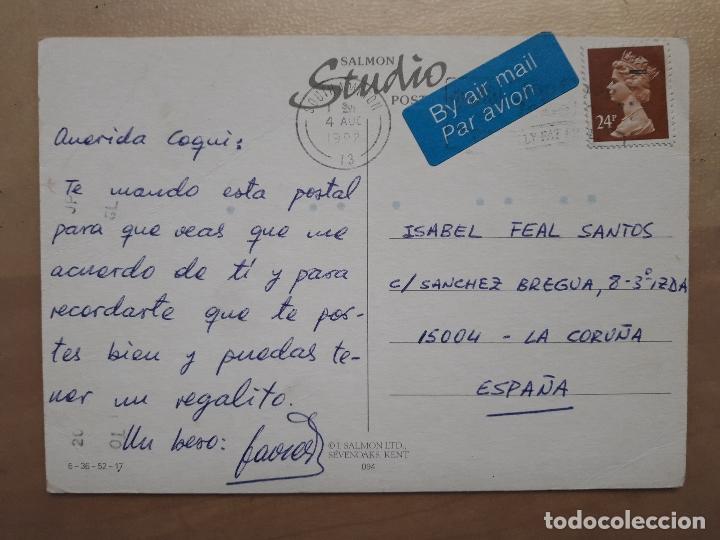 SALMON
Studio
POST
SOUTHAMPTON
4 AUG
1992
13
By air mail
Par avion
24P
Querida Coqui:
Te mando esta postal
para que veas que me
acuerdo de tí y para
recordarte que te por-
tes bien y puedas te-
ner un regalito.
Un beso:
ISABEL FEAL SANTOS
C/ SANCHEZ BREGUA, 8-3º IZDA
15004 - LA CORUÑA
ESPAÑA
© J. SALMON LTD.,
SEVENOAKS, KENT
094
6-36-52-17
todocoleccion
todocoleccion.net